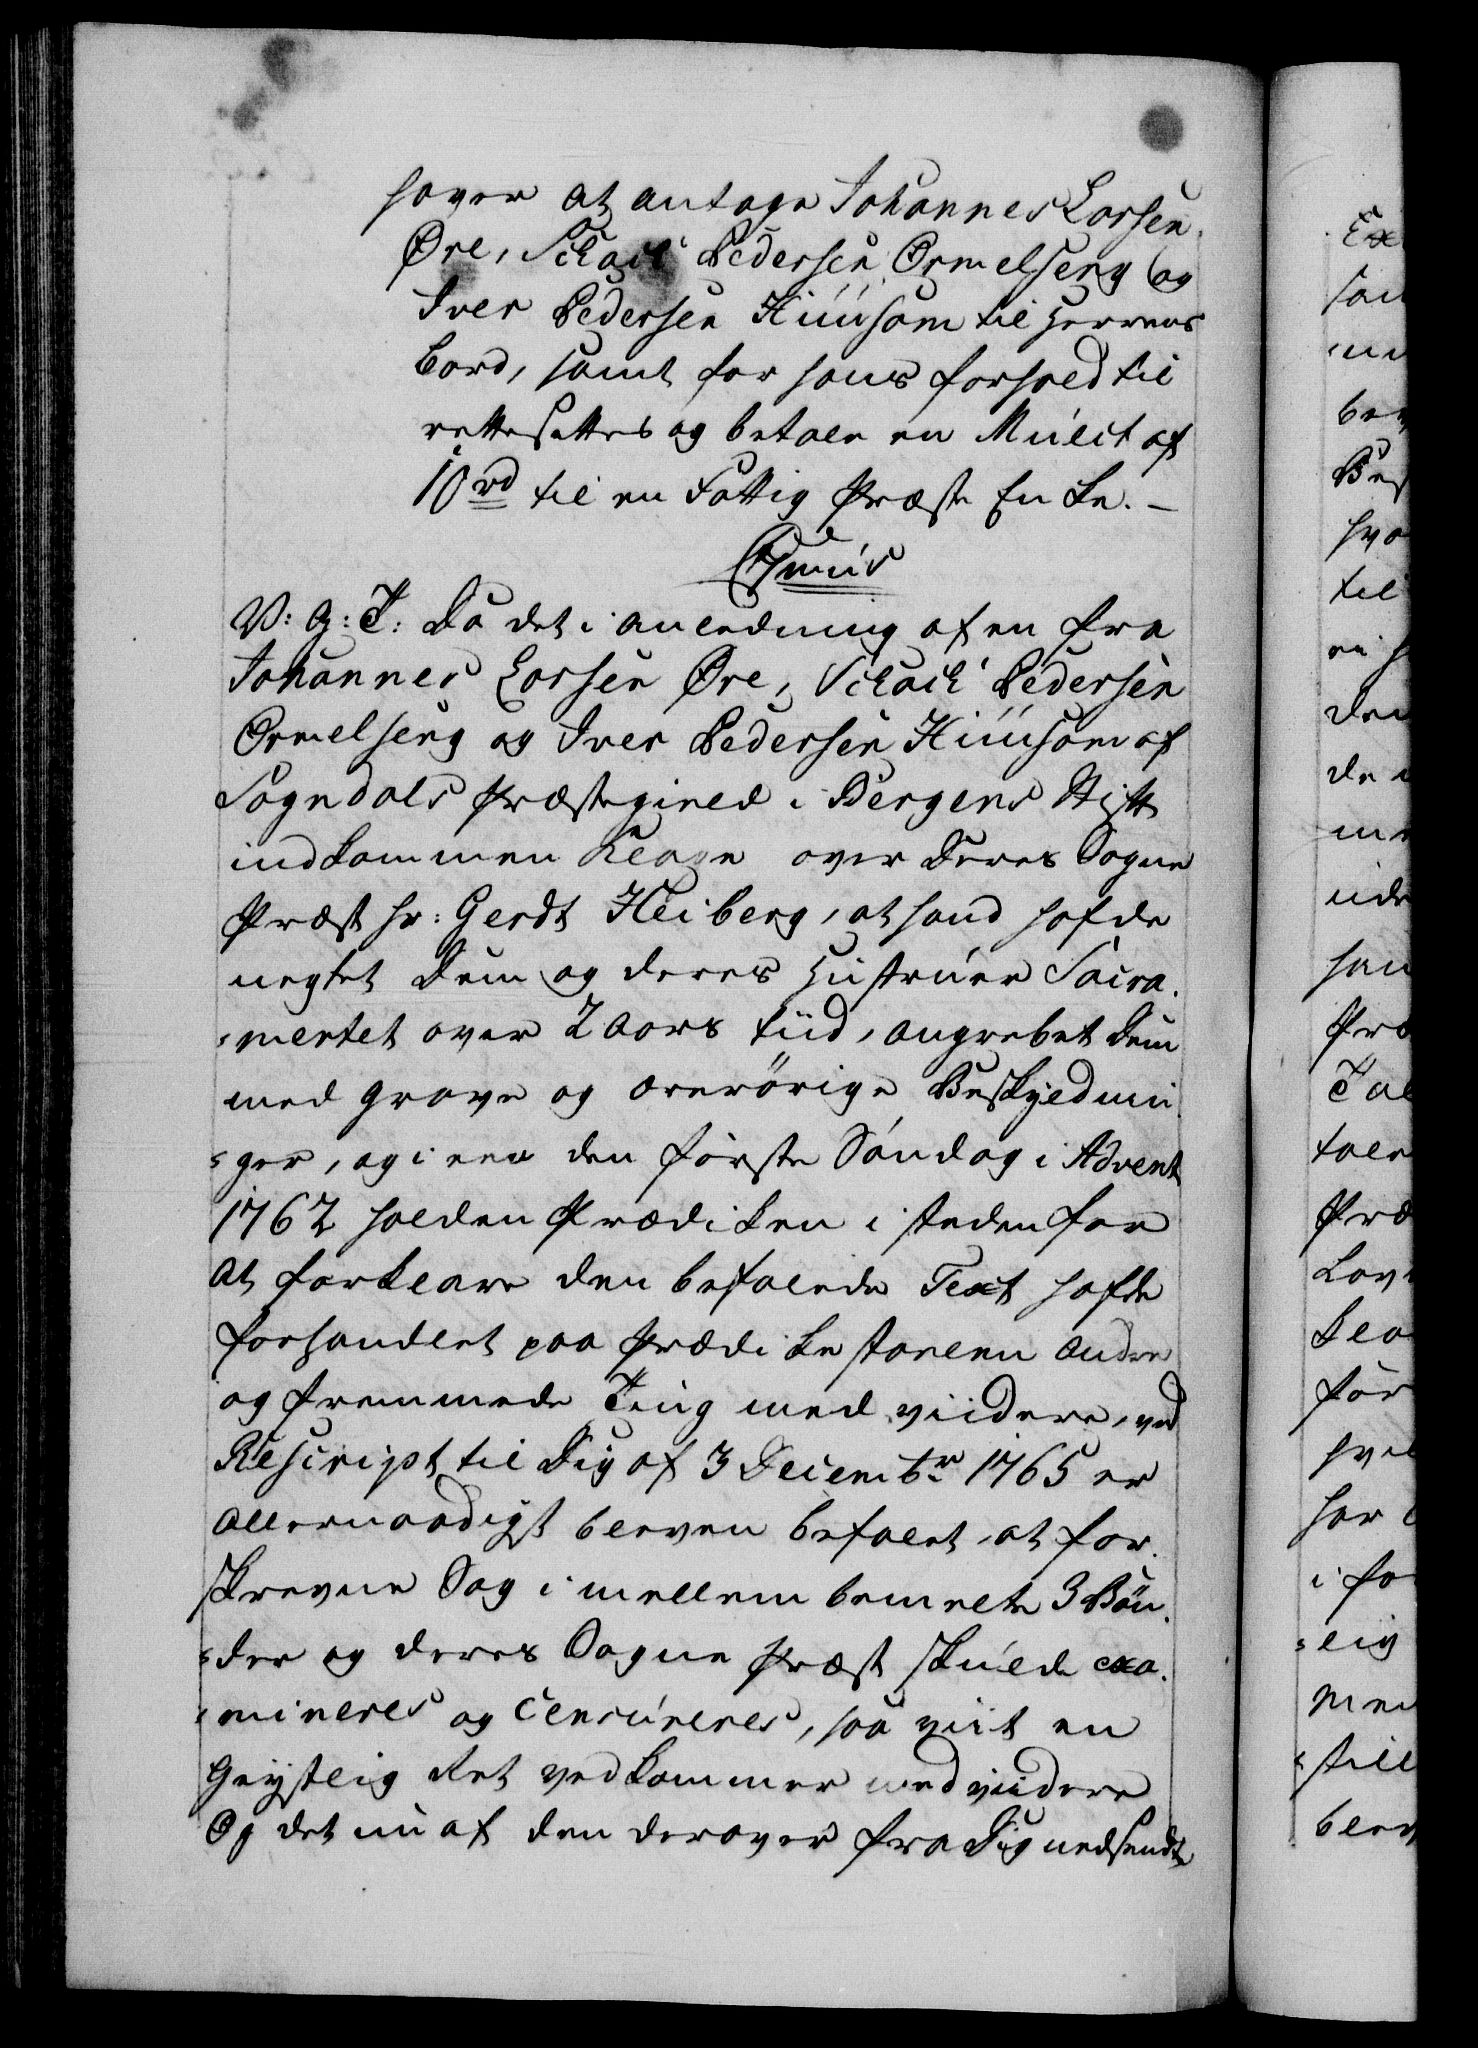 haver at antage Johannes Larsen
Øre, Schach Pedersen Ormelseng og
Iver Pedersen Huusom til Herrens
bord, samt for hans forhold til
rettesettes og betale en Mulct af
10 rd til en Fattig Præste Enke. –
Chr̃mus
V: G: T: Da det i anledning af en fra
Johannes Larsen Øre, Schach Pedersen
Ormelseng og Iver Pedersen Huusom af
Sogndals Præstegield i Bergens Stift
indkommen Klage over Deres Sogne
Præst Hr: Gerdt Heiberg, at hand hafde
negtet dem og deres Hustruer Sacra-
-mentet over 2 Aars tiid, angrebet dem
med grove og ærerørige Beskyldnin-
-ger, og i een den første Søndag i Advent
1762 holden Prædiken i steden for
at forklare den befalede Text hafde
forhandlet paa Prædikestoelen andre
og fremmede Ting med viidere, ved
Rescript til Dig af 3 Decembr 1765 er
allernaadigst bleven befalet, at for-
skrevne Sag imellem bemelte 3 Bøn-
-der og deres Sogne Præst skulde exa-
-mineres og Censureres, saa viit en
Geistlig Ret vedkommer med viidere
Og det nu af den derover fra Dig nedsendte